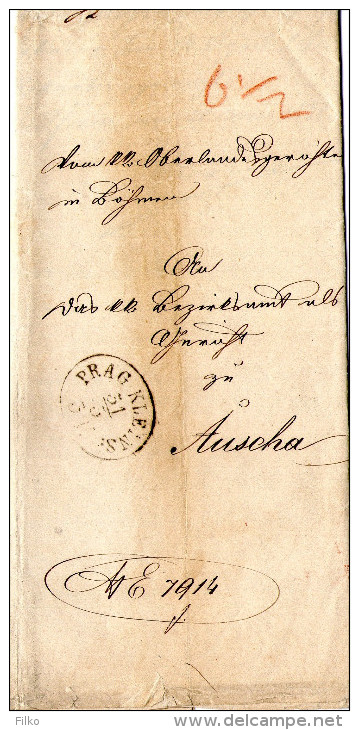 6 1/2
Vom kk Oberlandesgerichte
in Böhmen
An
Das kk Bezirksamt als
Gericht
zu
Auscha
PRAG KLEINS.
31
No E 1914
Filko